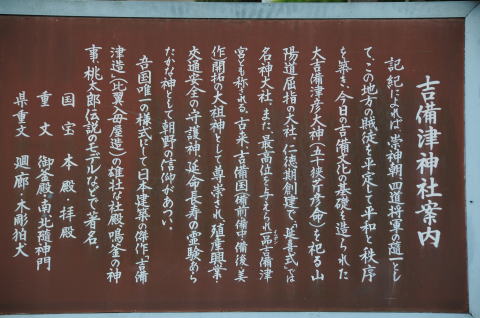 吉備津神社案内
記紀によれば、崇神朝四道将軍の随一とし
て、この地方の賊徒を平定して平和と秩序
を築き、今日の吉備文化の基礎を造られた
大吉備津彦大神(五十狭芹彦命)を祀る山
陽道屈指の大社。仁徳期創建で「延喜式」では
名神大社、また、最高位を与えられ「一品吉備津
宮とも称される。古来、吉備国(備前備中備後、美
作)開拓の大祖神として尊崇され、殖産興業・
交通安全の守護神、延命長寿の霊験あら
たかな神として朝野の信仰があつい。
吾国唯一の様式にして日本建築の傑作「吉備
津造」(比翼入母屋造)の雄壮な社殿、鳴釜の神
事、桃太郎伝説のモデルなどで著名。
国宝 本殿・拝殿
重文 御釜殿・南北随神門
県重文 廻廊・木彫狛犬